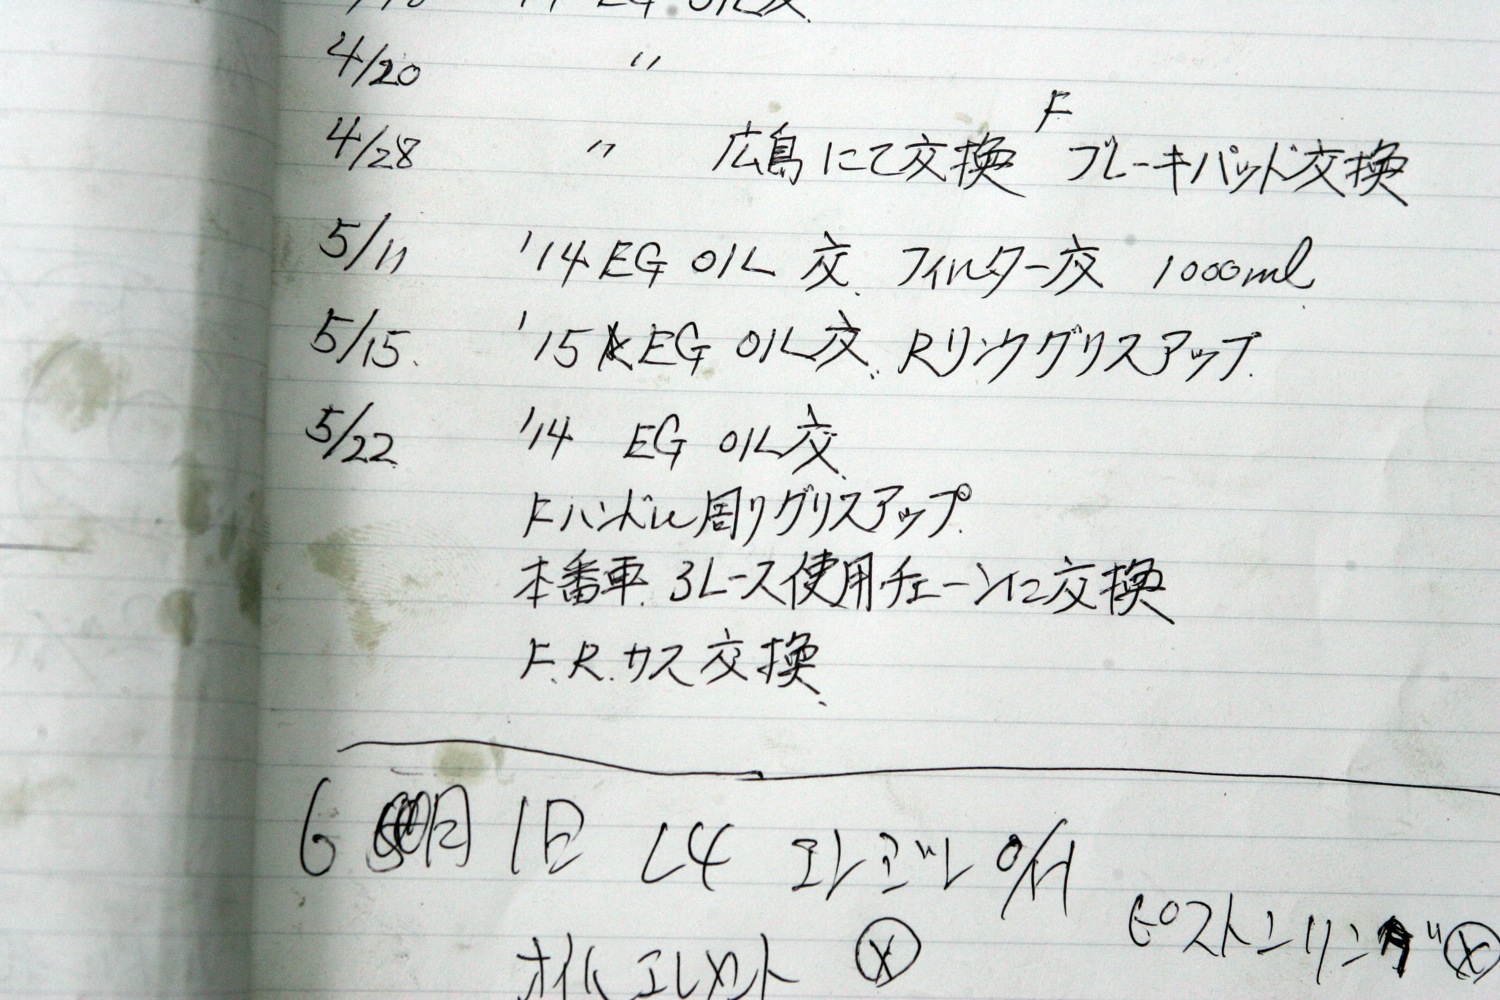 '14 EG OIL交
4/20 〃
4/28 〃 広島にて交換 F ブレーキパッド交換
5/11 '14 EG OIL 交. フィルター交 1000ml
5/15. '15 EG OIL交. Rリンクグリスアップ.
5/22 '14 EG OIL交.
Fハンドル周りグリスアップ.
本番車. 3レース使用チェーンに交換
F.R.カス交換.
6 月 1日 L4
オイルエレメント ⓧ ピストンリング ⓧ